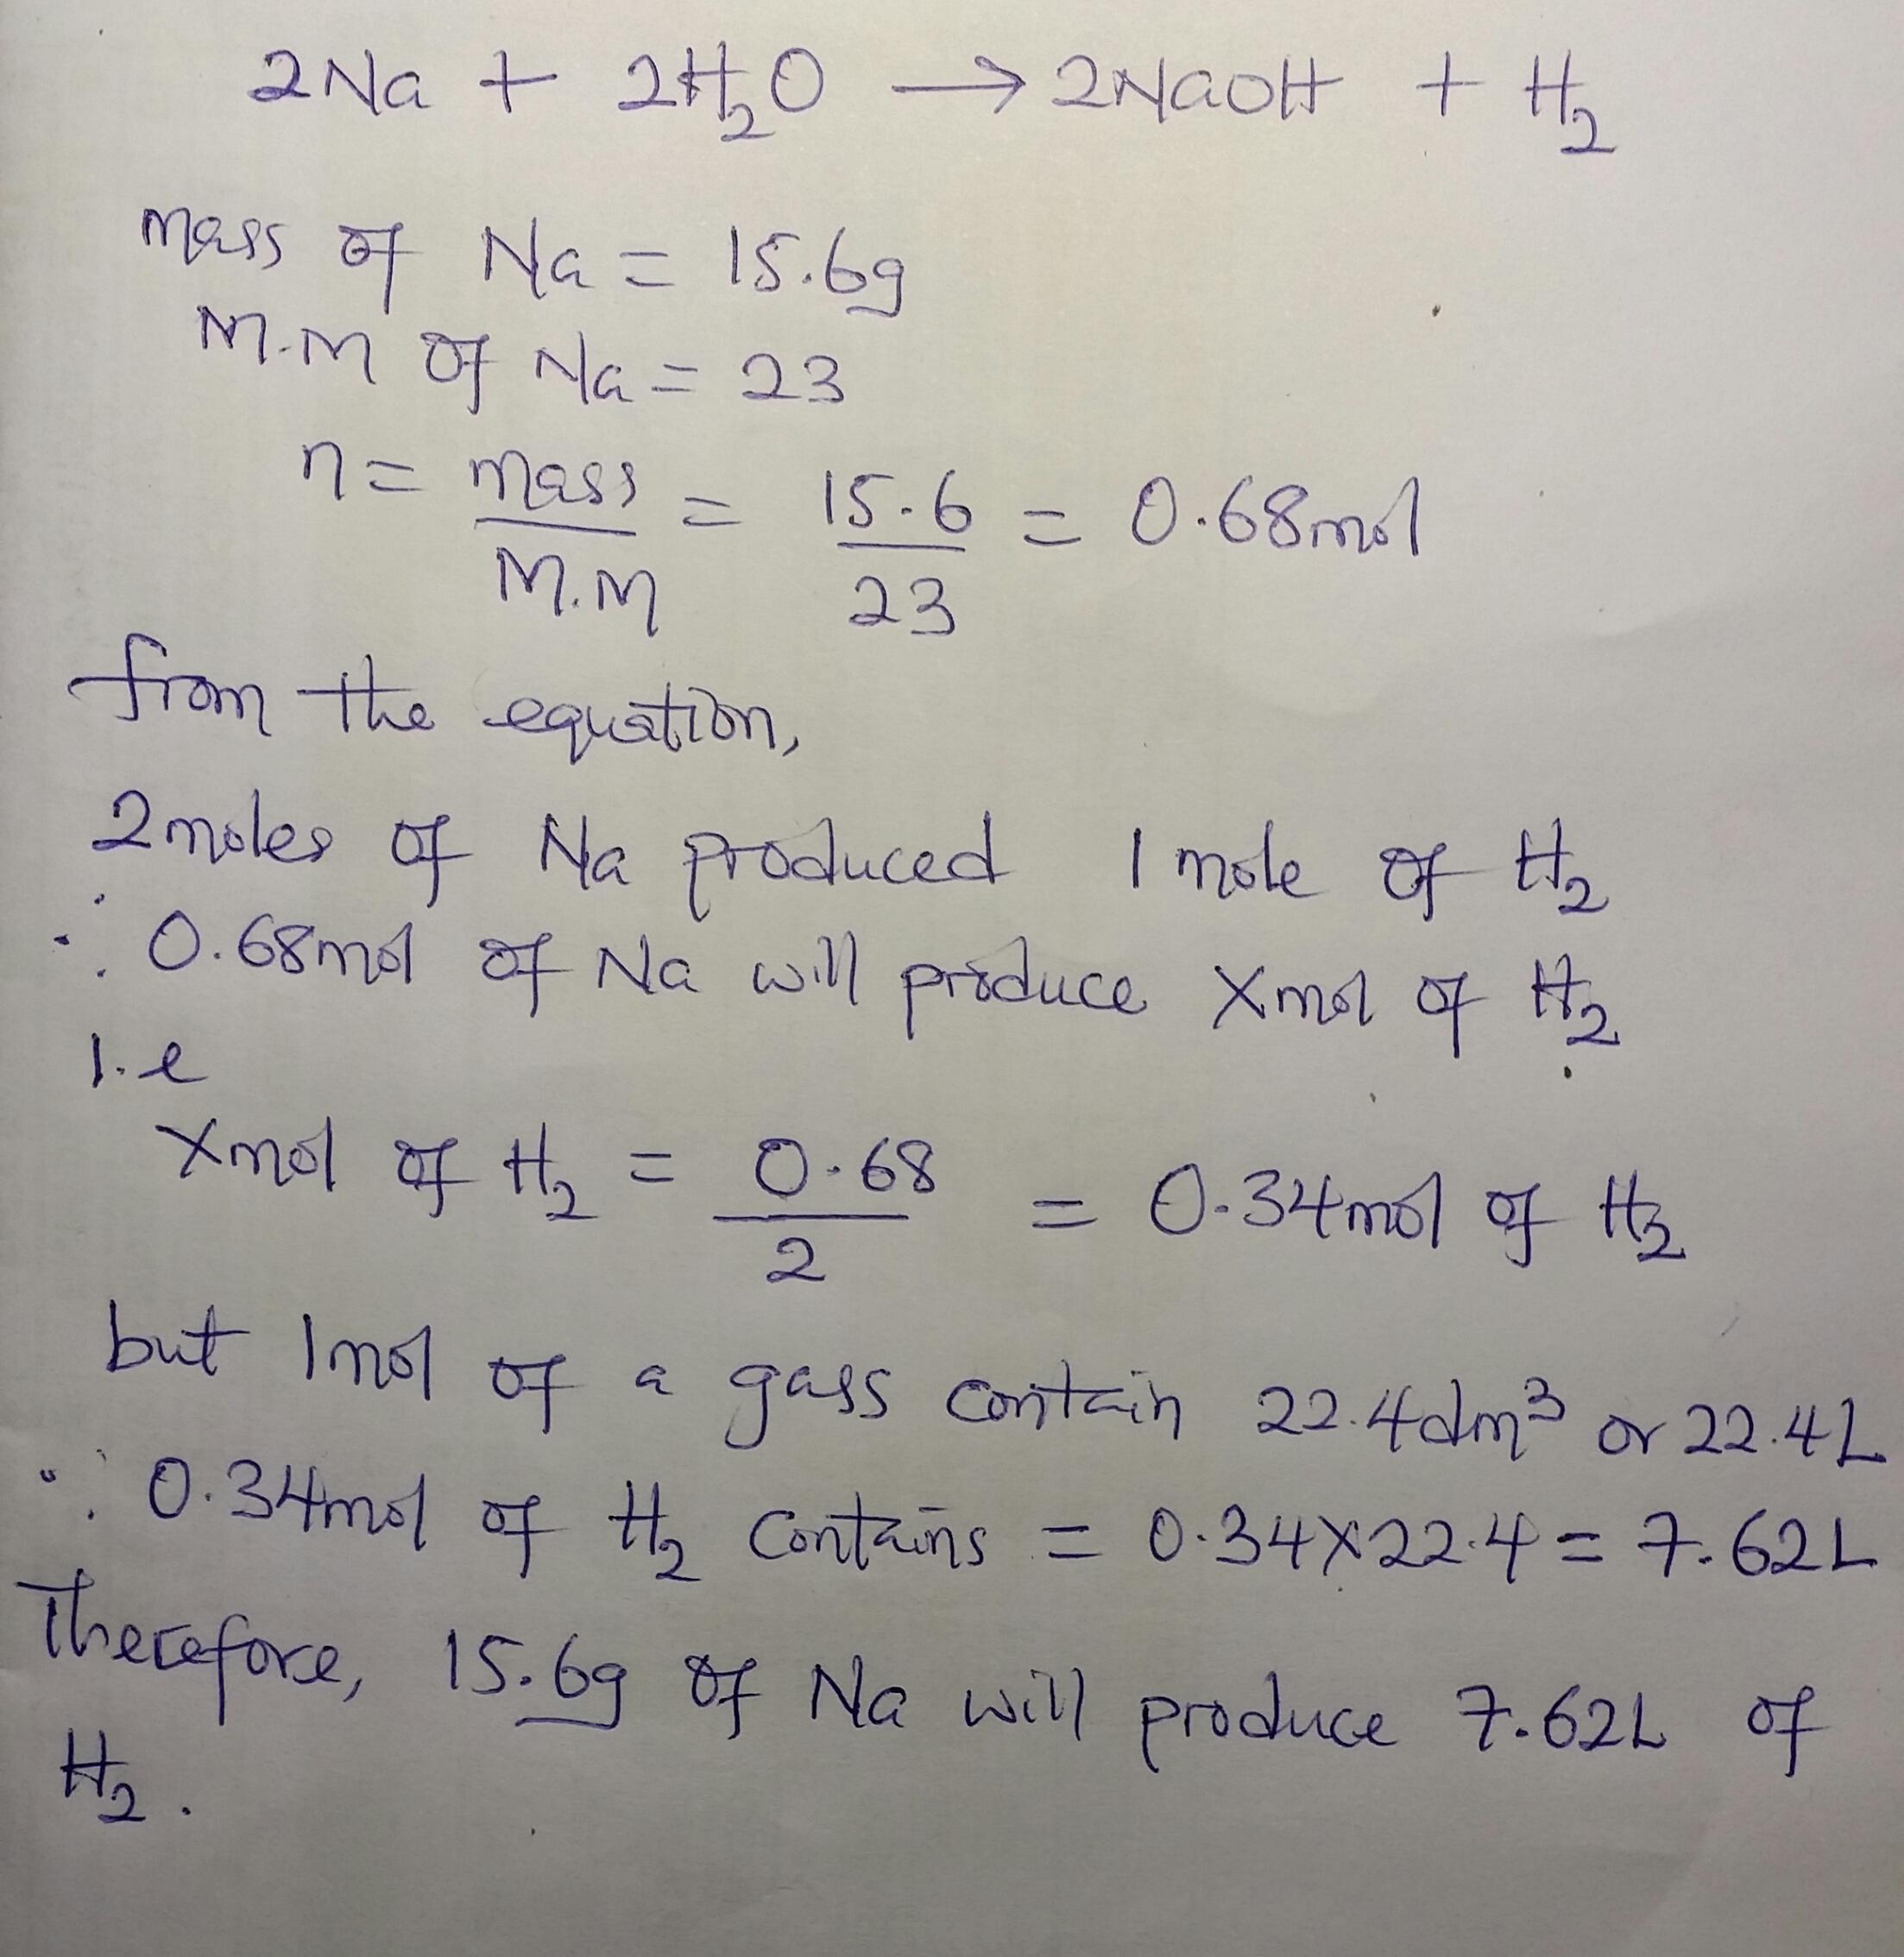 2Na + 2H₂O → 2NaOH + H₂
mass of Na = 15.6g
M.M of Na = 23
n = mass/M.M = 15.6/23 = 0.68mol
from the equation,
2moles of Na produced 1 mole of H₂
∴ 0.68mol of Na will produce Xmol of H₂
I.e
Xmol of H₂ = 0.68/2 = 0.34mol of H₂
but 1mol of a gass contain 22.4dm³ or 22.4L
∴ 0.34mol of H₂ contains = 0.34×22.4 = 7.62L
Therefore, 15.6g of Na will produce 7.62L of
H₂.